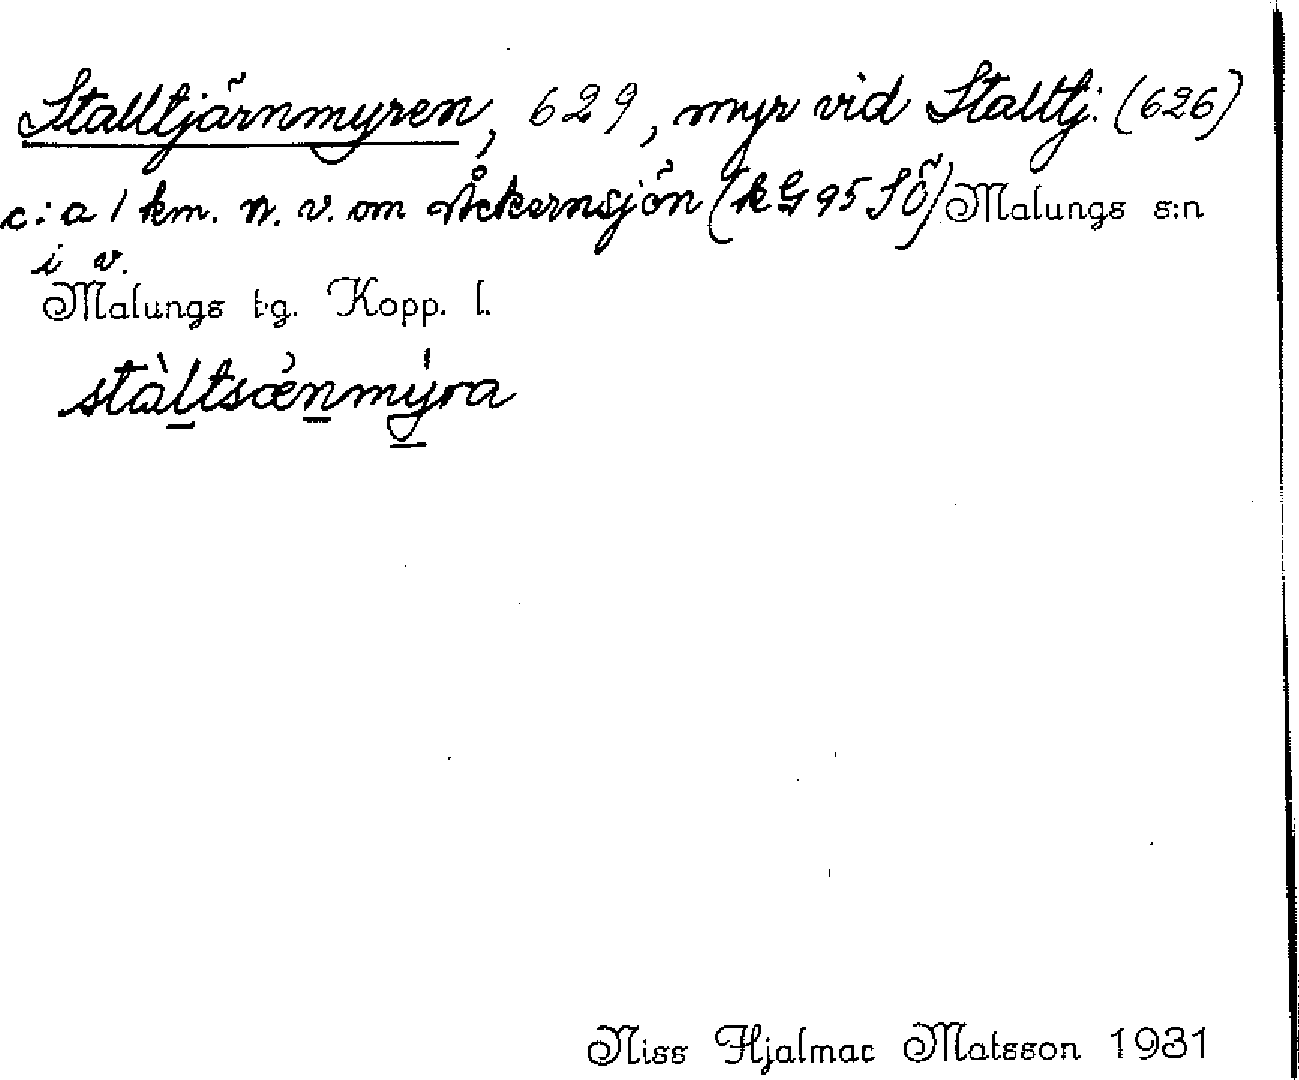 Stalltjärnmyren, 629, myr vid Stalltj: (626)
c:a 1 km. n. v. om Åckernsjön (k G 95 SÖ) Malungs s:n
i v.
Malungs t.g. Kopp. l.
stàltsænmýra
Niss Hjalmar Matsson 1931